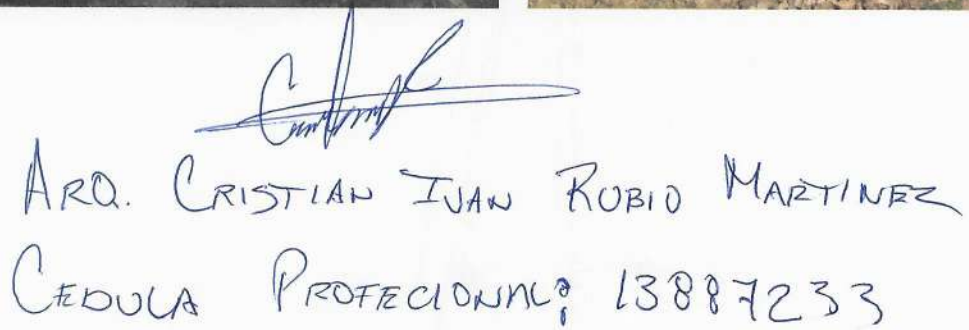 ARQ. CRISTIAN IVAN RUBIO MARTINEZ
CEDULA PROFECIONAL: 13887233